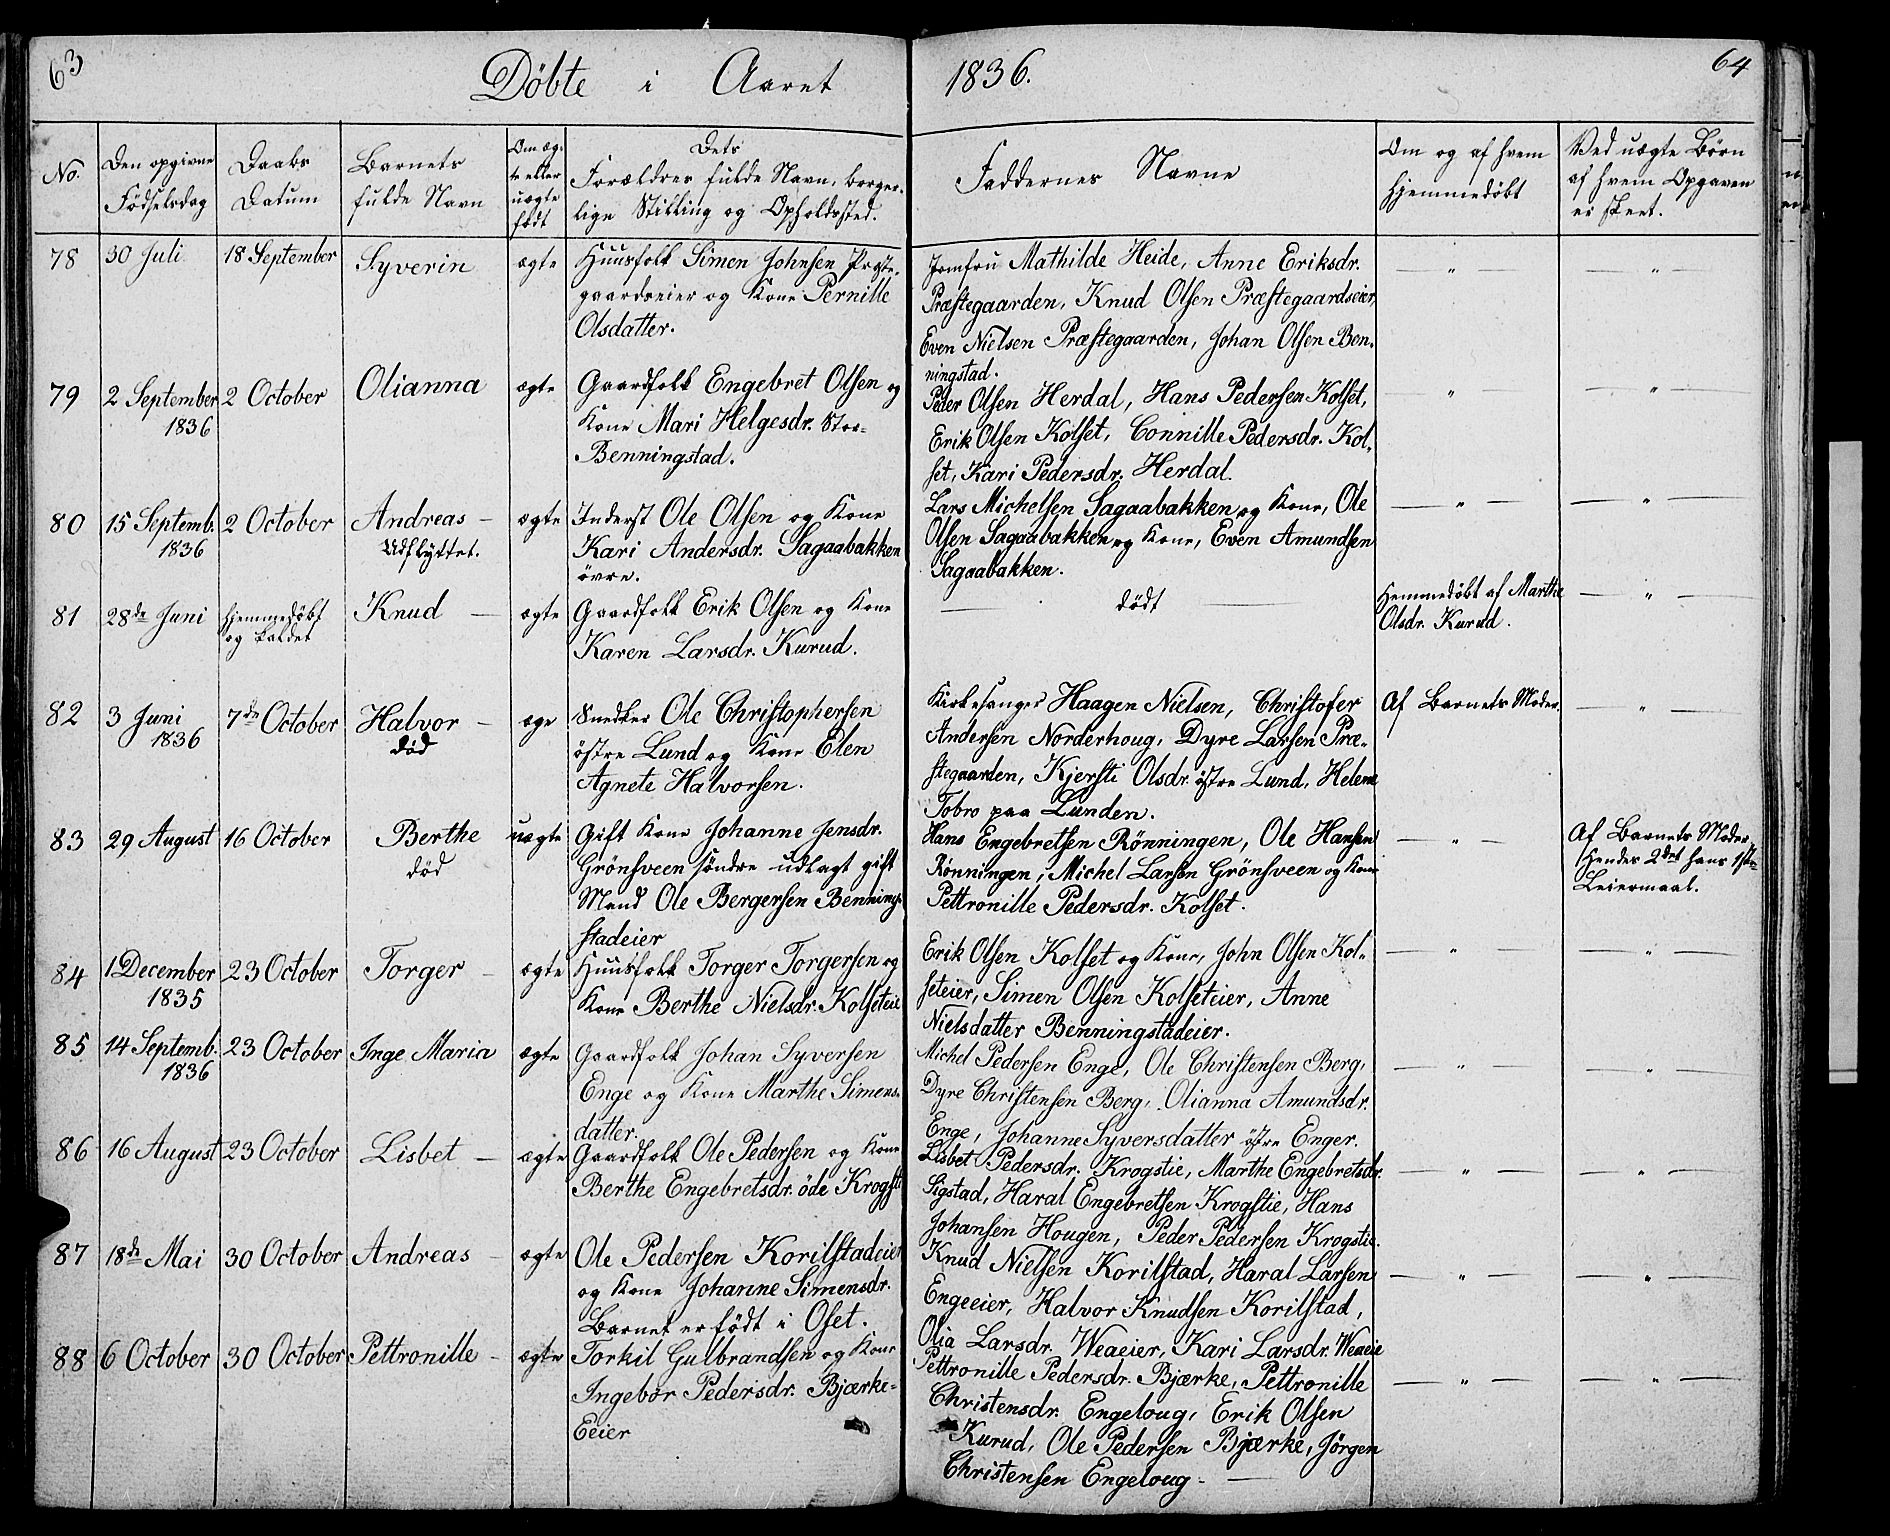 63
Döbte i Aaret 1836.
64
No.
Den opgivne Födselsdag
Daabs Datum
Barnets fulde Navn
Om æg- te eller uægte födt
Dets Forældres fulde Navn, borger- lige Stilling og Opholdssted.
Faddernes Navne
Om og af hvem hjemmedöbt
Ved uægte Börn af hvem Opgaven er skeet.
78 30 Juli 18 September Syverin ægte Huusfolk Simen Johnsen Præste-
gaardseier og Kone Pernille
Olsdatter.
Jomfru Mathilde Heide, Anne Eriksdr.
Præstegaarden, Knud Olsen Præstegaardseier,
Even Nielsen Præstegaarden, Johan Olsen Ben-
ningstad.
" — " —
79 2 September 2 October Olianna ægte Gaardfolk Engebret Olsen og
1836 Kone Mari Helgesdr. Stor-
Benningstad.
Peder Olsen Herdal, Hans Pedersen Kolset,
Erik Olsen Kolset, Connille Pedersdr. Kol-
set, Kari Pedersdr. Herdal.
— " — " —
80 15 Septemb. 2 October Andreas — ægte Inderst Ole Olsen og Kone
1836 Udflyttet. Kari Andersdr. Sagaabakken
övre.
Lars Michelsen Sagaabakken og Kone, Ole
Olsen Sagaabakken og Kone, Even Amundsen
Sagaabakken.
— " — — " —
81 28de Juni hjemmedöbt Knud — ægte Gaardfolk Erik Olsen og Kone
og kaldet Karen Larsdr. Kurud.
— dödt —
Hjemmedöbt af Marthe
Olsdr. Kurud.
— " —
82 3 Juni 7de October Halvor — æge Snedker Ole Christophersen
1836 död östre Lund og Kone Elen
Agnete Halvorsen.
Kirkesanger Haagen Nielsen, Christofer
Andersen Norderhoug, Dyre Larsen Præ-
stegaarden, Kjersti Olsdr. östre Lund, Helene
Tobro paa Lunden.
Af Barnets Moder.
— " —
83 29 August 16 October Berthe uægte Gift Kone Johanne Jensdr.
död Grönsveen söndre udlagt gift
Mand Ole Bergersen Bennings-
stadeier
Hans Engebretsen Rönningen, Ole Hansen
Rönningen, Michel Larsen Grönsveen og Kone
Pettronille Pedersdr. Kolset.
— " —
Af Barnets Moder
Hendes 2det hans 1ste
Leiermaal.
84 1 December 23 October Torger — ægte Huusfolk Torger Torgersen og
1835 Kone Berthe Nielsdr. Kolseteie
Erik Olsen Kolset og Kone, John Olsen Kol-
seteier, Simen Olsen Kolseteier, Anne
Nielsdatter Benningstadeier.
— " — — " —
85 14 Septemb. 23 October Inge Maria ægte Gaardfolk Johan Syversen
1836 Enge og Kone Marthe Simens-
datter.
Michel Pedersen Enge, Ole Christensen Berg,
Dyre Christensen Berg, Olianna Amundsdr.
Enge, Johanne Syversdatter östre Enger.
— " — — " —
86 16 August 23 October Lisbet — ægte Gaardfolk Ole Pedersen og Kone
Berthe Engebretsdr. öde Krogsti
Lisbet Pedersdr. Krogstie, Marthe Engebretsdr.
Sigstad, Haral Engebretsen Krogstie, Hans
Johansen Hougen, Peder Pedersen Krogstie.
— " — — " —
87 18de Mai 30 October Andreas — ægte Ole Pedersen Korilstadeier
og Kone Johanne Simensdr.
Barnet er födt i Oset.
Knud Nielsen Korilstad, Haral Larsen
Engeeier, Halvor Knudsen Korilstad,
Olia Larsdr. Weaeier, Kari Larsdr. Weaeie
— " — — " —
88 6 October 30 October Pettronille — ægte Torkil Gulbrandsen og Kone
Ingebor Pedersdr. Bjærke-
Eeier
Pettronille Pedersdr. Bjærke, Pettronille
Christensdr. Engeloug, Erik Olsen
Kurud, Ole Pedersen Bjærke, Jörgen
Christensen Engeloug. —
— " — — " —